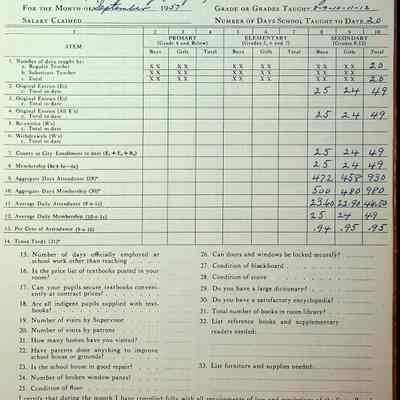 FOR THE MONTH OF September 1957 GRADE OR GRADES TAUGHT 8-9-10-11-12
SALARY CLAIMED NUMBER OF DAYS SCHOOL TAUGHT TO DATE 20
1 2 3 4 5 6 7 8 9 10
ITEM PRIMARY (Grade 4 and Below) ELEMENTARY (Grades 5, 6 and 7) SECONDARY (Grades 8-12)
Boys Girls Total Boys Girls Total Boys Girls Total
1. Number of days taught by:
a. Regular Teacher X X X X X X X X X X X X 20
b. Substitute Teacher X X X X X X X X X X X X
c. Total X X X X X X X X X X X X 20
2. Original Entries (E1)
c. Total to date 25 24 49
3. Original Entries (E2)
c. Total to date
4. Original Entries (All E's)
c. Total to date 25 24 49
5. Re-entries (R's)
c. Total to date
6. Withdrawals (W's)
c. Total to date
7. County or City Enrollment to date 25 24 49
8. Membership 25 24 49
9. Aggregate Days Attendance 472 458 930
10. Aggregate Days Membership 500 480 980
11. Average Daily Attendance 23.60 22.90 46.50
12. Average Daily Membership 25 24 49
13. Per Cent of Attendance .94 .95 .95
14. Times Tardy
15. Number of days officially employed at
school work other than teaching
16. Is the price list of textbooks posted in your
room?
17. Can your pupils secure textbooks conveni-
ently at contract prices?
18. Are all indigent pupils supplied with text-
books?
19. Number of visits by Supervisor
20. Number of visits by patrons
21. How many homes have you visited?
22. Have parents done anything to improve
school house or grounds?
23. Is the school house in good repair?
24. Number of broken window panes?
25. Condition of floor
26. Can doors and windows be locked securely?
27. Condition of blackboard
28. Condition of stove
29. Do you have a large dictionary?
30. Do you have a satisfactory encyclopedia?
31. Total number of books in room library?
32. List reference books and supplementary
readers needed:
33. List furniture and supplies needed: